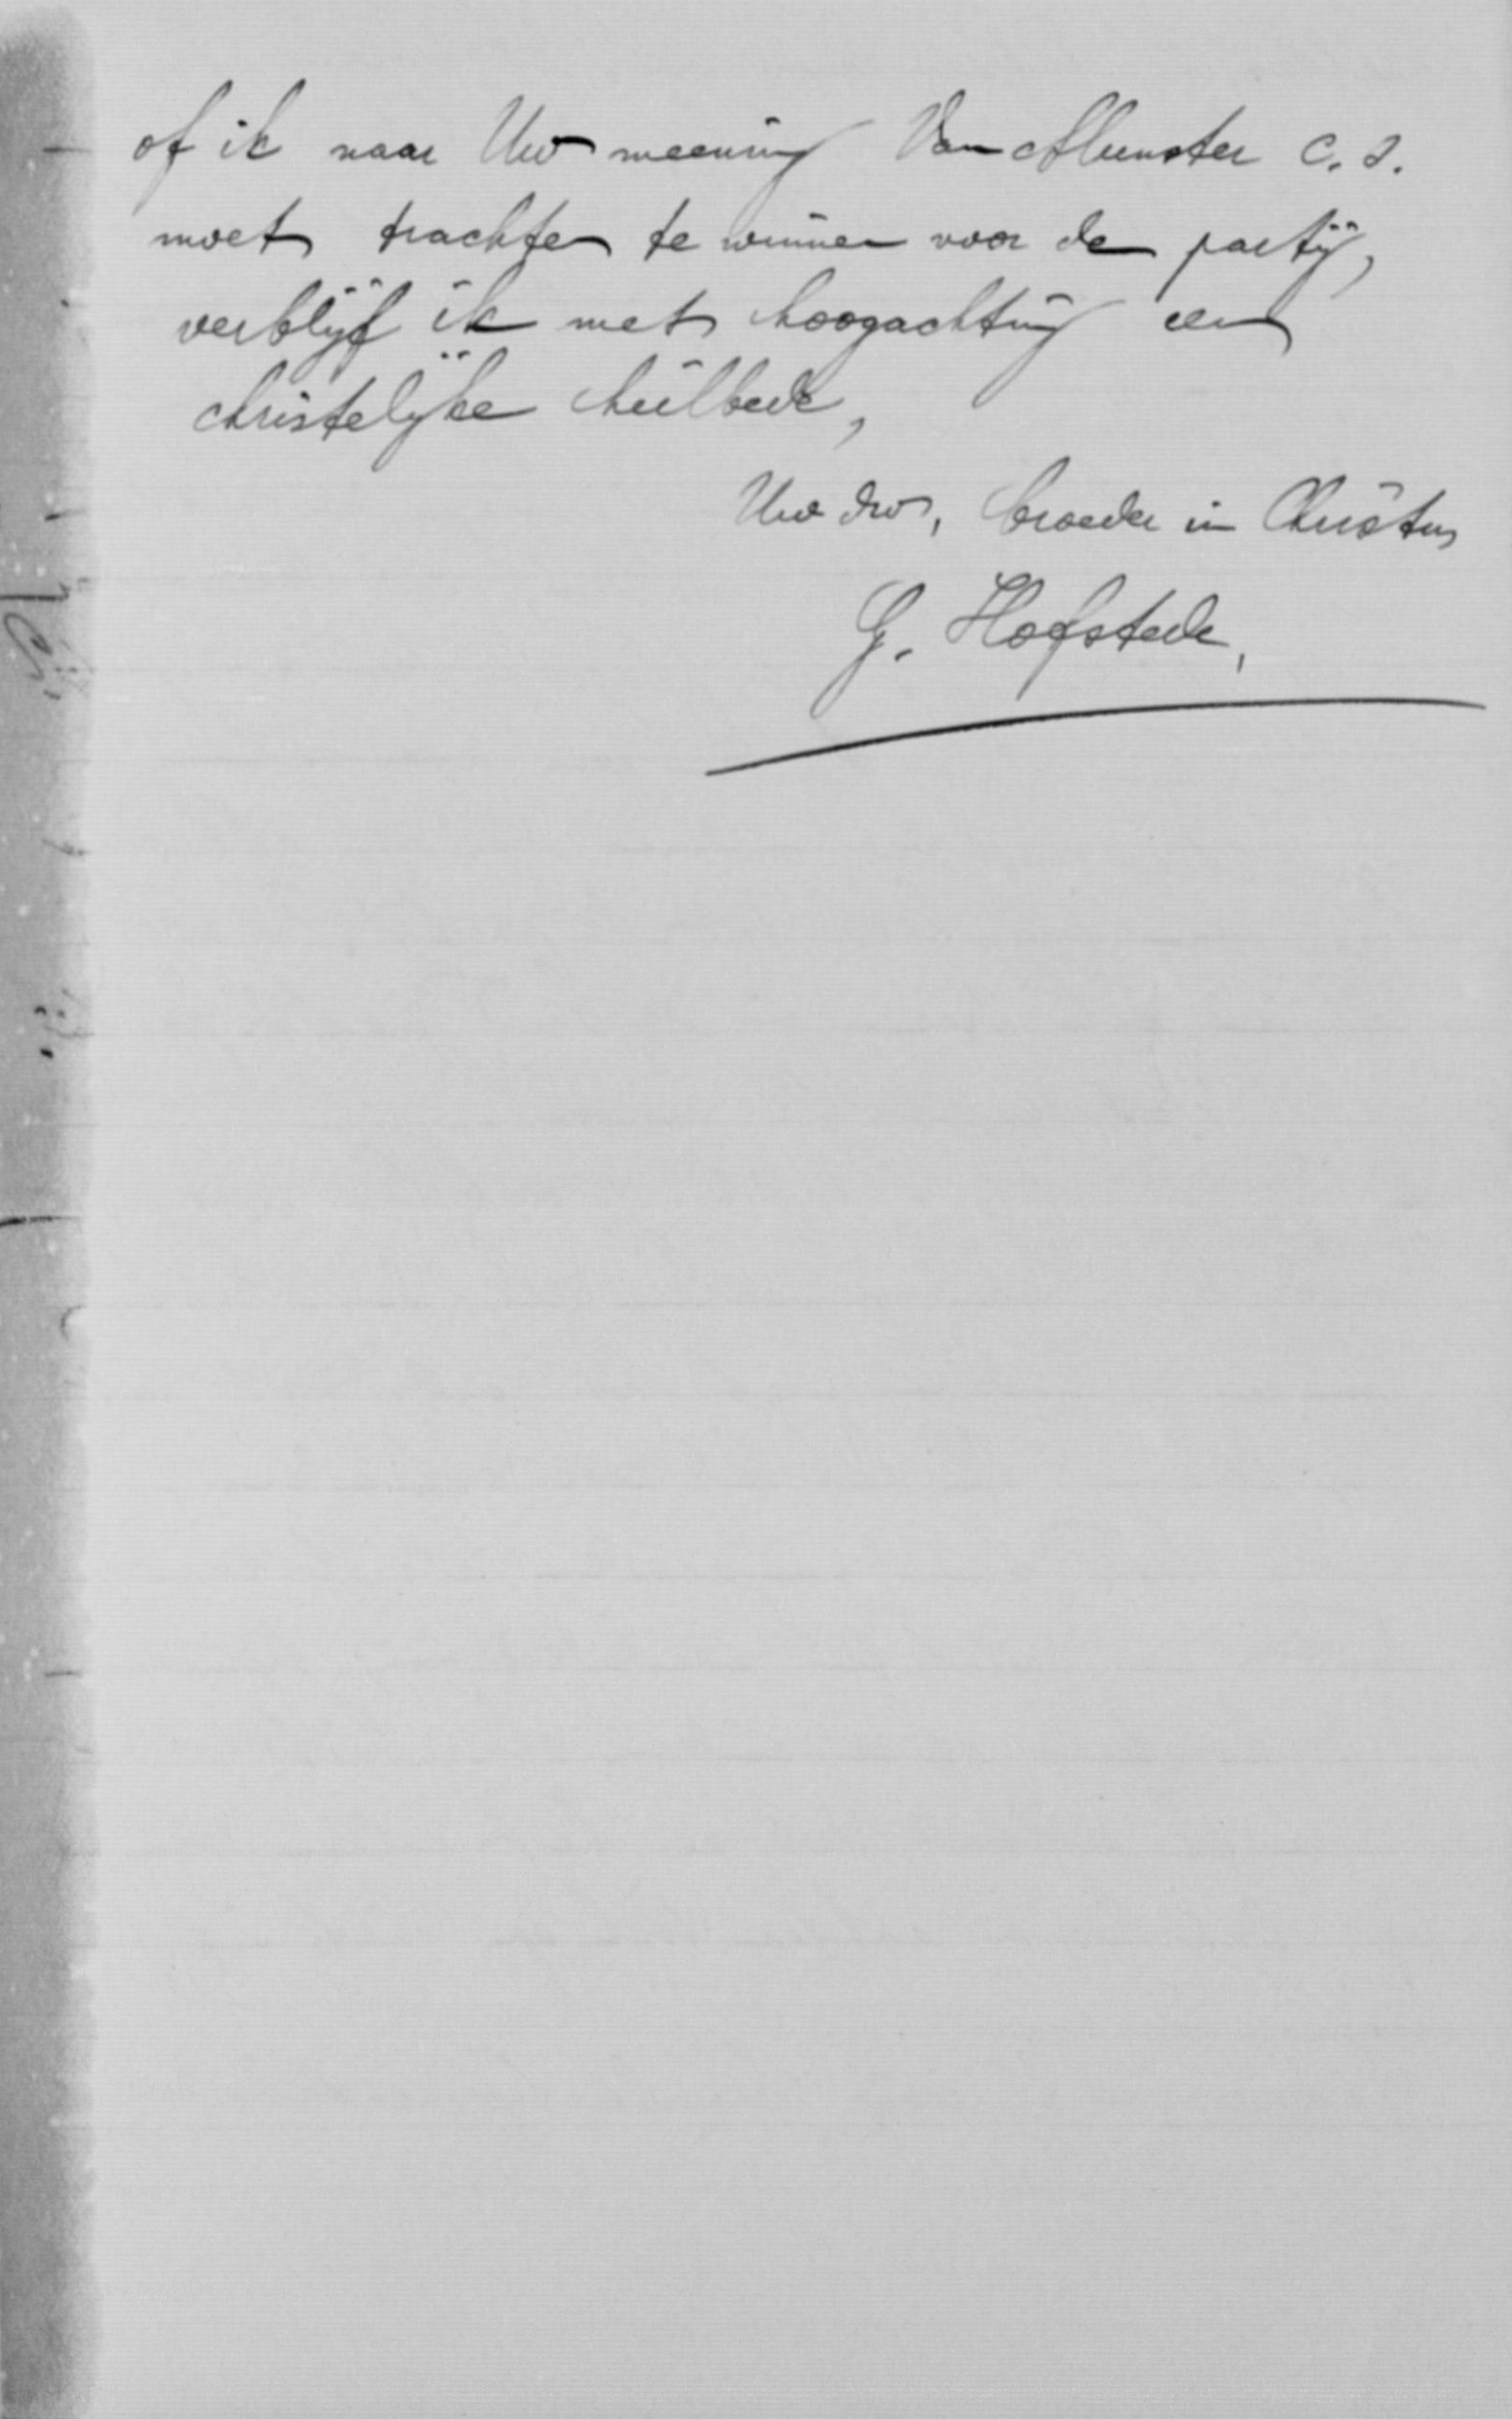 of ik naar Uw meening Van Munster c.s.
moet trachten te winnen voor de partij,
verblijf ik met hoogachting en
christelijke heilbede,
Uw dw, broeder in Christus
G. Hofstede,